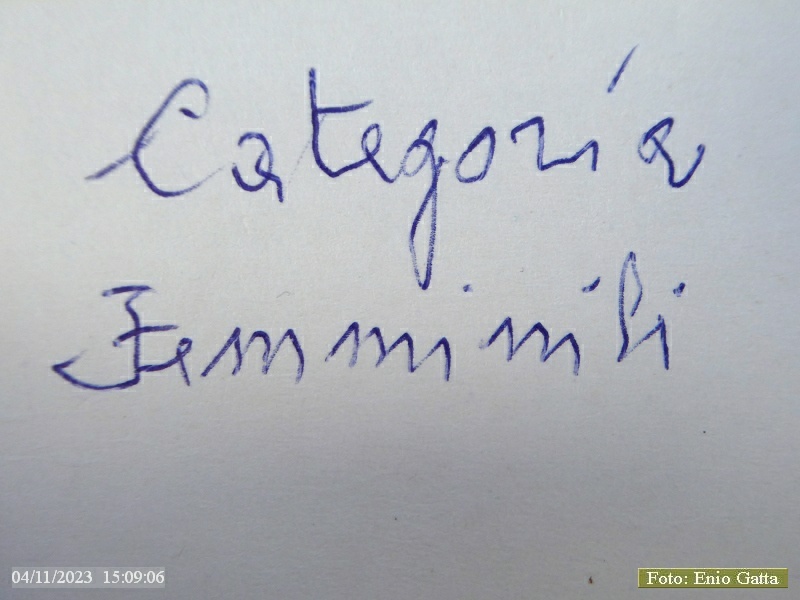 Categoria
Femminili
04/11/2023 15:09:06
Foto: Enio Gatta